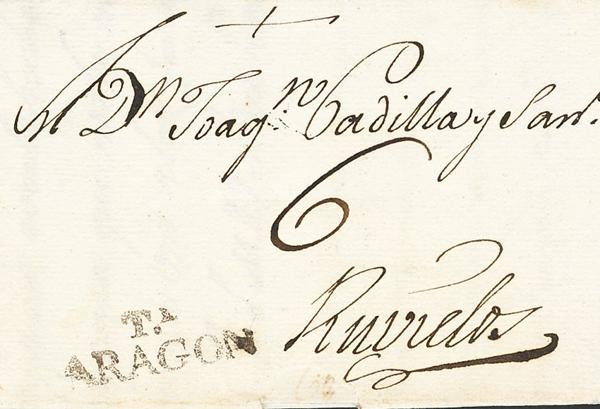 A Dn Joaqn. Padilla y San.
6
Ruvielos
T.A
ARAGON